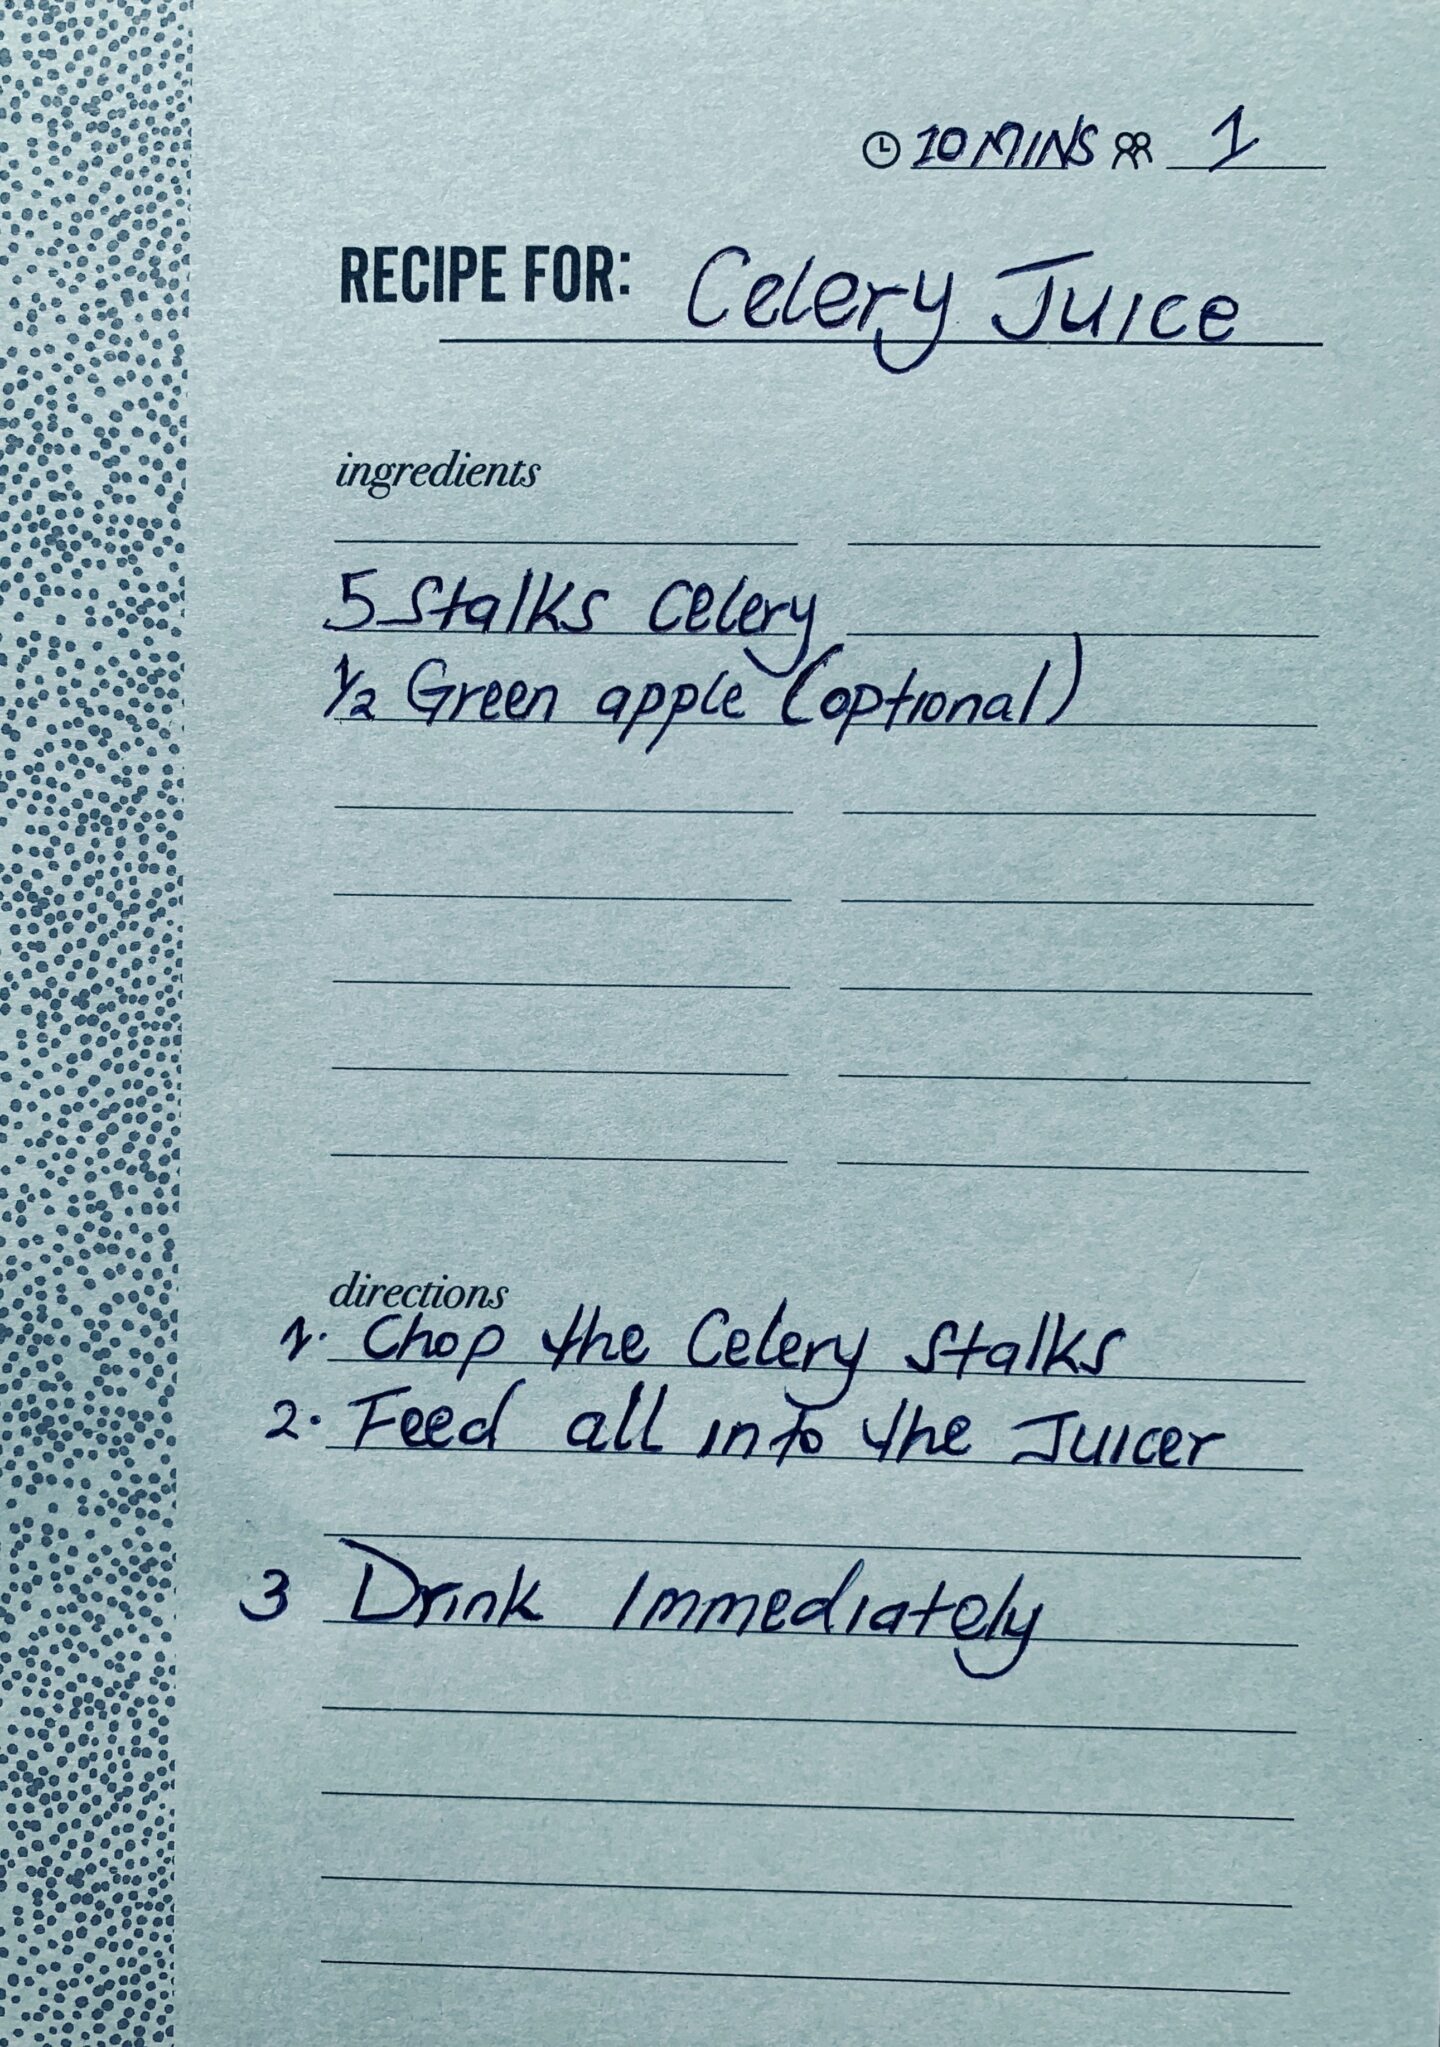 10 MINS 1
RECIPE FOR: Celery Juice
ingredients
5 Stalks Celery
1/2 Green apple (optional)
directions
1. Chop the Celery Stalks
2. Feed all into the Juicer
3 Drink Immediately